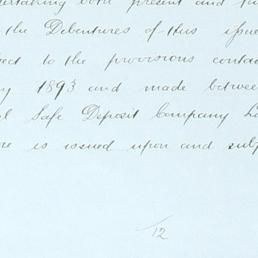 both present and
the Debentures of this issue
to the provisions
1893 and made between
Safe Deposit Company
is issued upon and
12